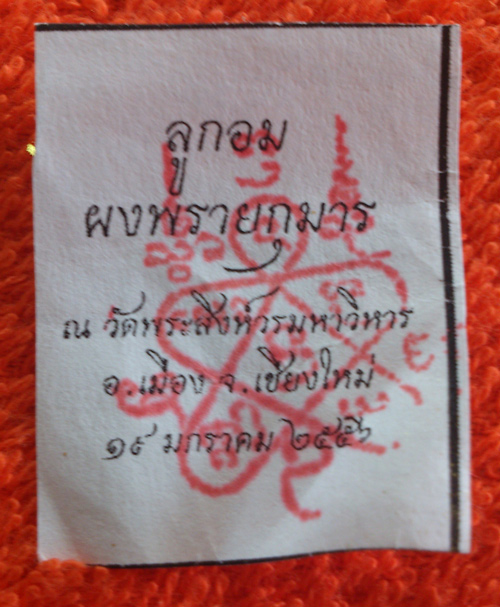 ลูกอม
ผงพรายกุมาร
ณ วัดพระสิงห์วรมหาวิหาร
อ.เมือง จ.เชียงใหม่
๑๙ มกราคม ๒๕๕๖